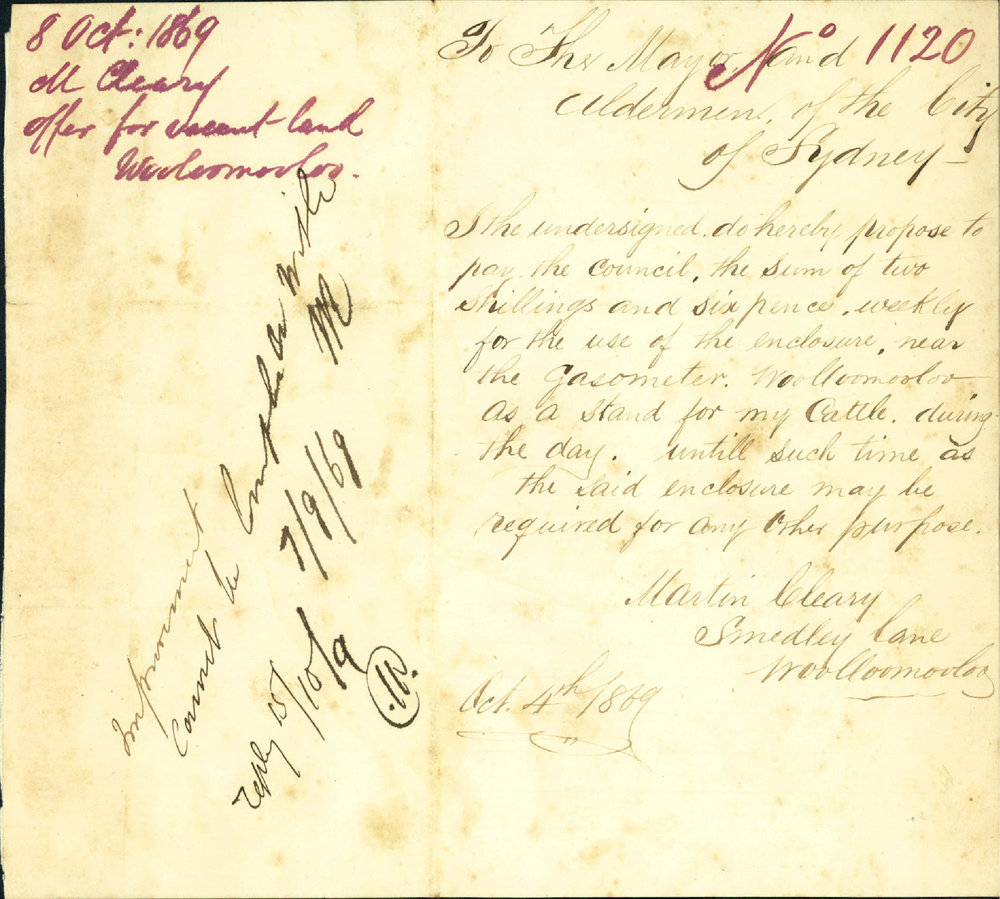 8 Oct: 1869
M Cleary
offer for vacant land
Woolloomooloo.
No 1120
To The Mayor and
Aldermen, of the City
of Sydney
I the undersigned. do hereby propose to
pay. the Council, the Sum of two
Shillings and Six pence. weekly
for the use of the enclosure, near
the Gasometer. Woolloomooloo
as a Stand for my Cattle. during
the day. untill such time as
the said enclosure may be
required for any other purpose.
Martin Cleary
Smedley Lane
Woolloomooloo
Oct. 4th 1869
cannot be
7/9/69
reply 15/10/9